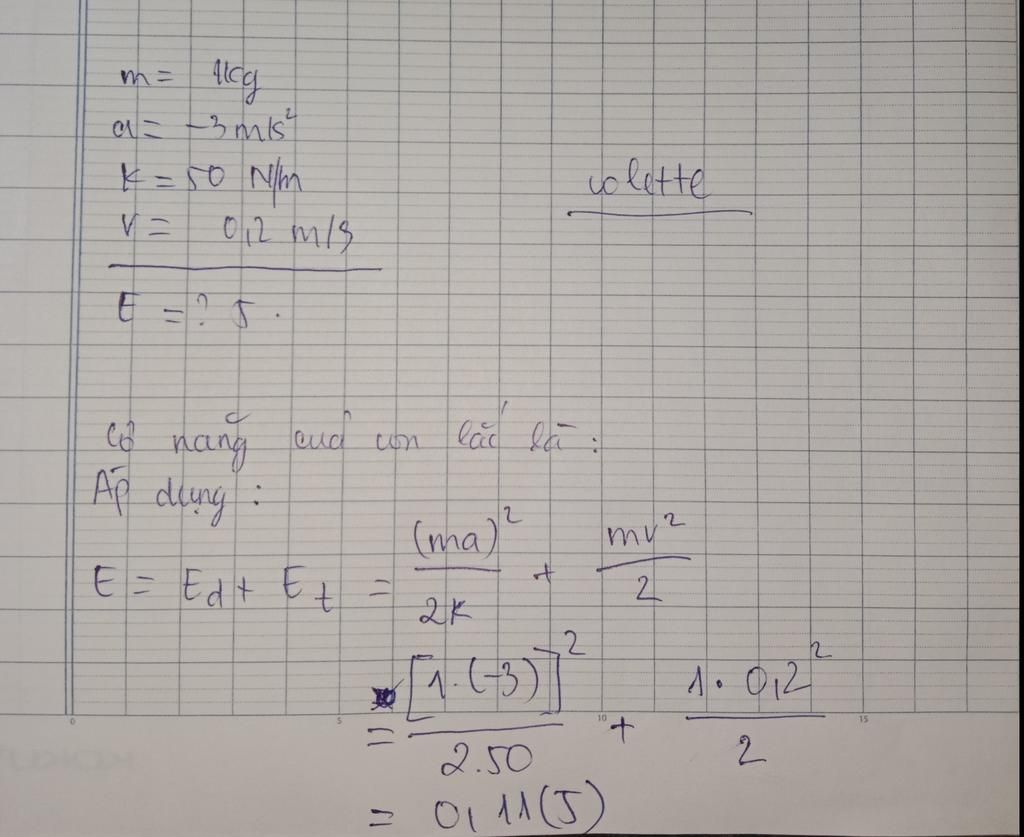 m = 1kg
a = -3 m/s²
K = 50 N/m
v = 0,2 m/s
colette
E = ? J.
Cơ năng của con lắc là:
Áp dụng:
E = E_d + E_t = (ma)²/2K + mv²/2
= [1.(-3)]²/2.50 + 1.0,2²/2
= 0,11(J)
0 5 10 15